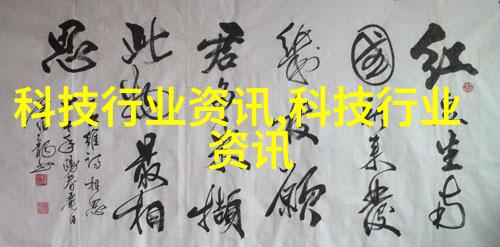 科技行业资讯,科技行业
资讯
红豆生南
國春来發
幾枝願
君多采撷
此物最相
思